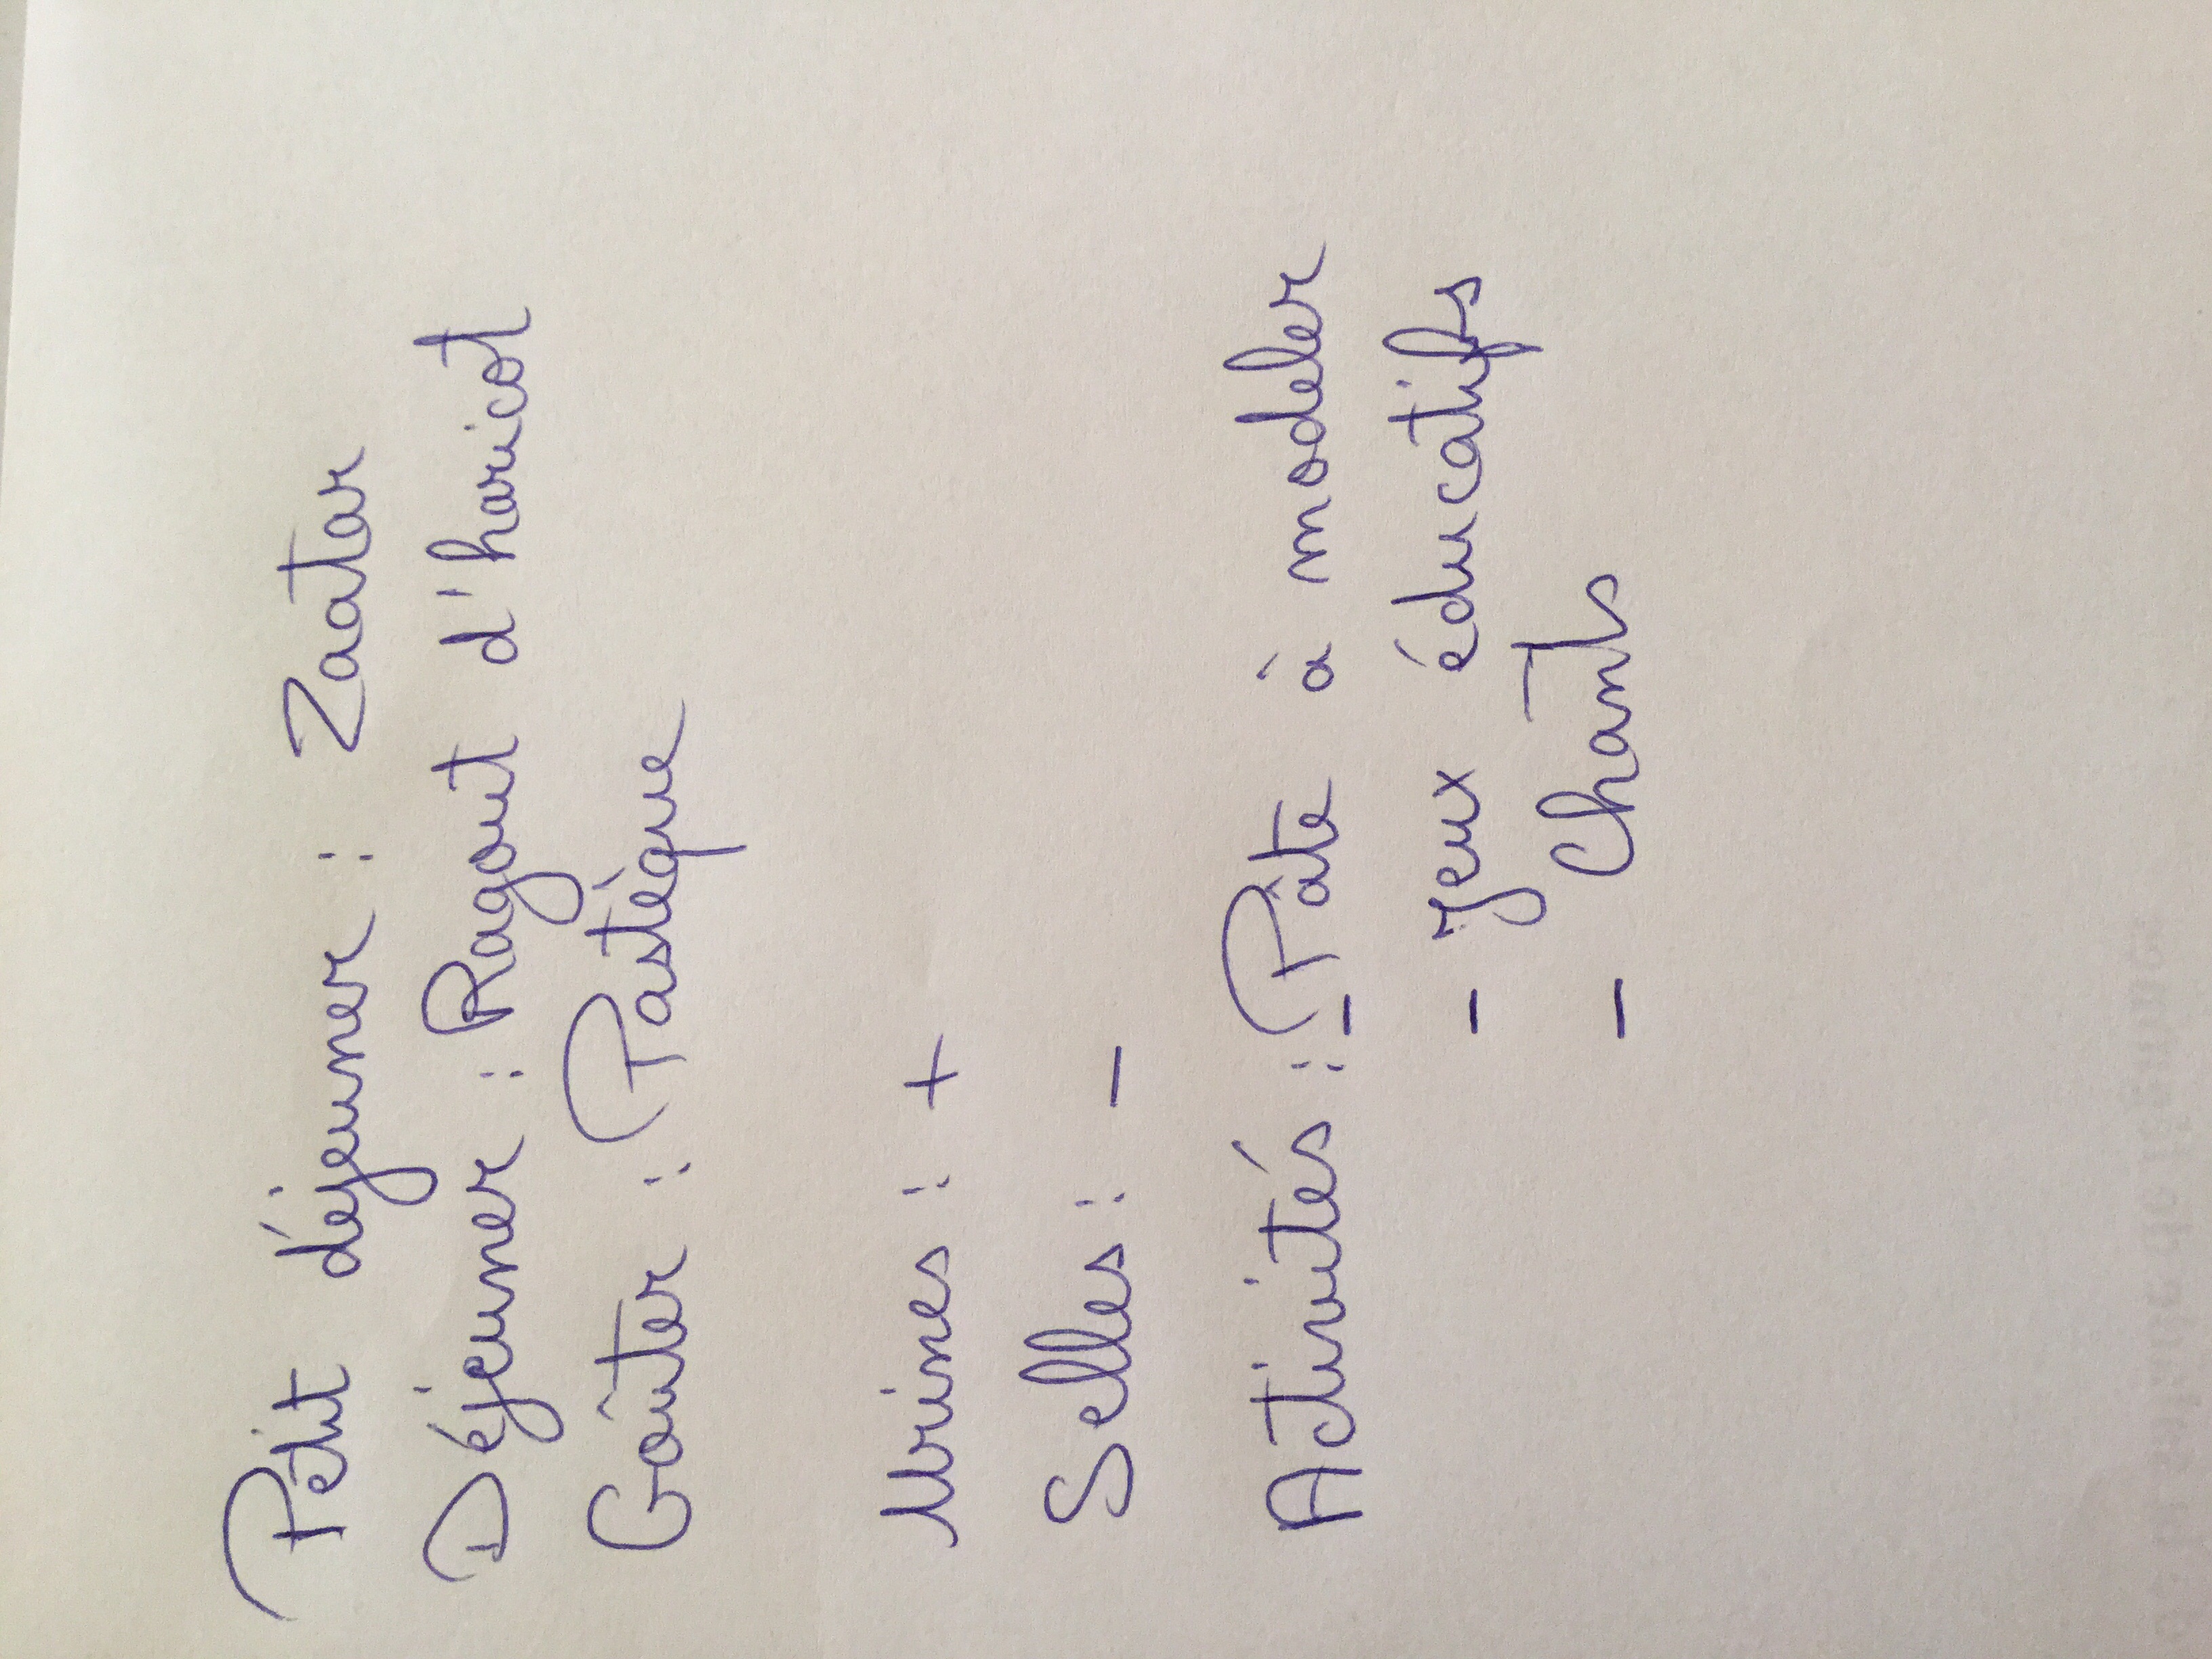 Petit déjeuner : Zaatar
Déjeuner : Ragout d'haricot
Goûter : Pastèque
Urines : +
Selles : -
Activités : - Pâte à modeler
- Jeux éducatifs
- Chants